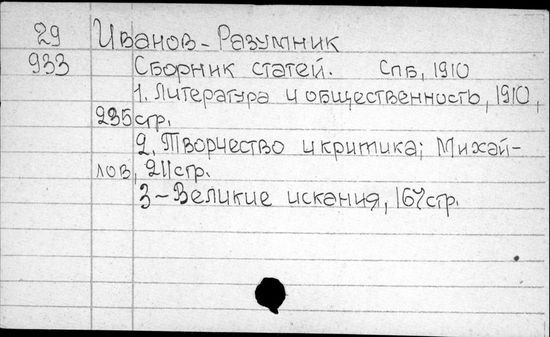 29 Иванов-Разумник
933 Сборник статей. Спб, 1910
1. Литература и общественность, 1910,
235 стр.
2. Творчество и критика; Михай-
лов, 211 стр.
3 - Великие искания, 167 стр.